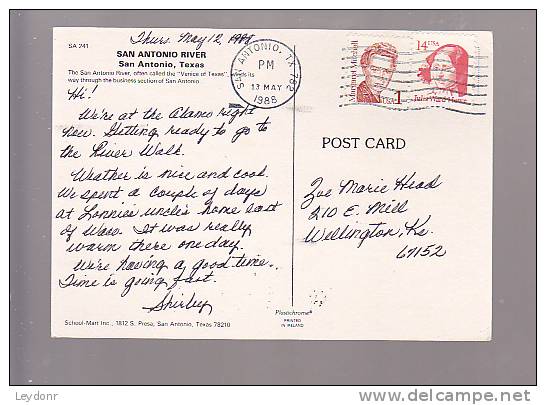 Thurs. May 12, 1988
SA 241
SAN ANTONIO RIVER
San Antonio, Texas
The San Antonio River, often called the "Venice of Texas", winds its
way through the business section of San Antonio
Hi!
We're at the Alamo right
now. Getting ready to go to
the River Walk.
Weather is nice and cool.
We spent a couple of days
at Lonnie's uncle's home east
of Waco. It was really
warm there one day.
We're having a good time.
Time is going fast.
Shirley
School-Mart Inc., 1812 S. Presa, San Antonio, Texas 78210
SAN ANTONIO, TX 782
PM
13 MAY
1988
Margaret Mitchell
USA 1
14 USA
Julia Ward Howe
POST CARD
Zoe Marie Head
210 E. Mill
Wellington, Ks.
67152
Plastichrome®
PRINTED
IN IRELAND
Leydonr
delcampe.net